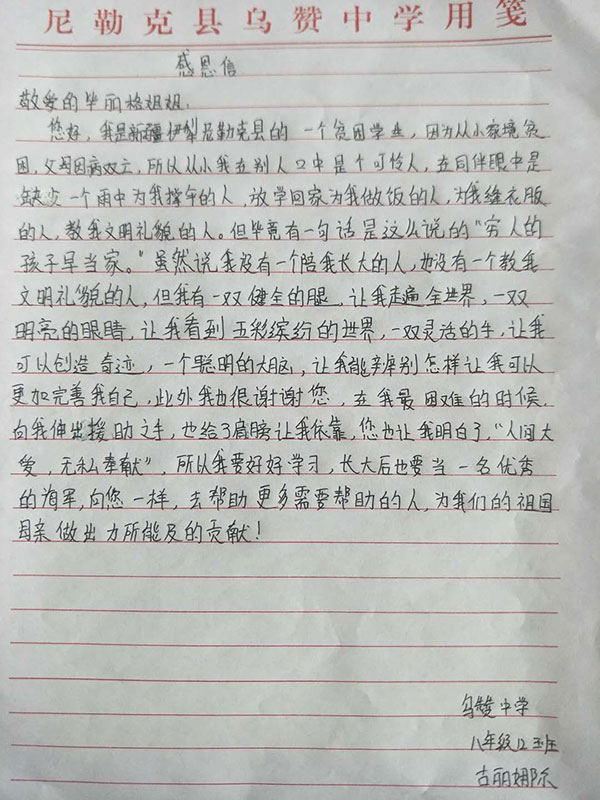 尼勒克县乌赞中学用笺
感恩信
敬爱的毕丽格姐姐:
您好,我是新疆伊犁尼勒克县的一个贫困学生,因为从小家境贫
困,父母因病双亡,所以从小我在别人口中是个可怜人,在同伴眼中是
缺少一个雨中为我撑伞的人,放学回家为我做饭的人,为我缝衣服
的人,教我文明礼貌的人。但毕竟有一句话是这么说的“穷人的
孩子早当家。”虽然说我没有一个陪我长大的人,也没有一个教我
文明礼貌的人,但我有一双健全的腿,让我走遍全世界,一双
明亮的眼睛,让我看到五彩缤纷的世界,一双灵活的手,让我
可以创造奇迹,一个聪明的大脑,让我能辩别怎样让我可以
更加完善我自己,此外我也很谢谢您,在我最困难的时候,
向我伸出援助之手,也给了肩膀让我依靠,您也让我明白了,“人间大
爱,无私奉献”,所以我要好好学习,长大后也要当一名优秀
的海军,向您一样,去帮助更多需要帮助的人,为我们的祖国
母亲做出力所能及的贡献!
乌赞中学
八年级12班
古丽娜尔